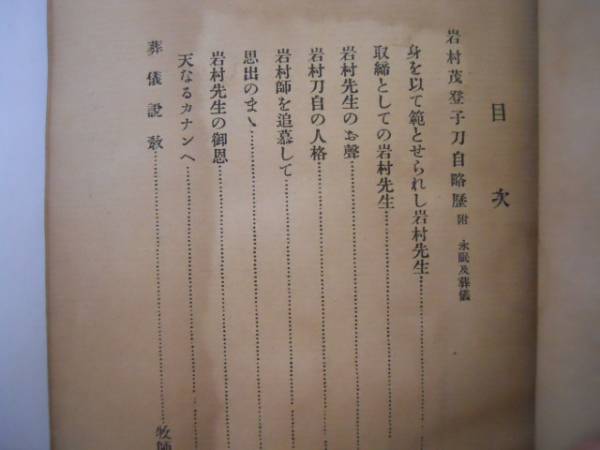 目次
岩村茂登子刀自略歴 附 永眠及葬儀
身を以て範とせられし岩村先生
取締としての岩村先生
岩村先生のお聲
岩村刀自の人格
岩村師を追慕して
思出のまゝ
岩村先生の御恩
天なるカナンへ
葬儀説教 牧師